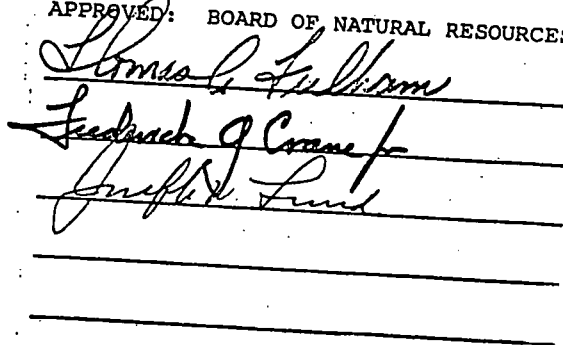 APPROVED: BOARD OF NATURAL RESOURCES
Thomas
Frederick J Crane Jr
Joseph Lund